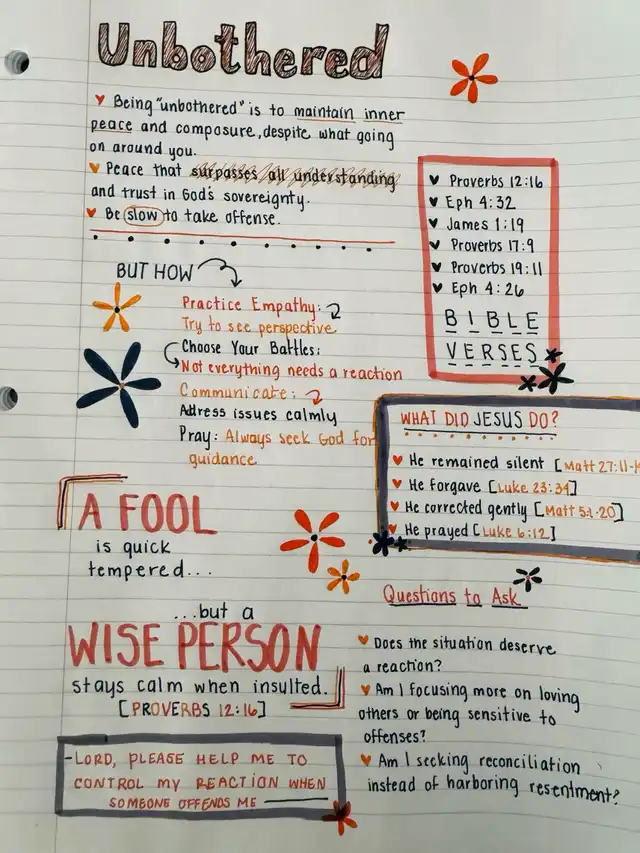 Unbothered
Being "unbothered" is to maintain inner
peace and composure, despite what going
on around you.
Peace that surpasses all understanding
and trust in God's sovereignty.
Be slow to take offense.
Proverbs 12:16
Eph 4:32
James 1:19
Proverbs 17:9
Proverbs 19:11
Eph 4:26
BIBLE
VERSES
BUT HOW
Practice Empathy:
Try to see perspective
Choose Your Battles:
Not everything needs a reaction
Communicate:
Address issues calmly
Pray: Always seek God for
guidance
WHAT DID JESUS DO?
He remained silent [Matt 27:11-
He forgave [Luke 23:34]
He corrected gently [Matt 5:1-20]
He prayed [Luke 6:12]
A FOOL
is quick
tempered...
...but a
WISE PERSON
stays calm when insulted.
[PROVERBS 12:16]
Questions to Ask
Does the situation deserve
a reaction?
Am I focusing more on loving
others or being sensitive to
offenses?
Am I seeking reconciliation
instead of harboring resentment?
-LORD, PLEASE HELP ME TO
CONTROL MY REACTION WHEN
SOMEONE OFFENDS ME